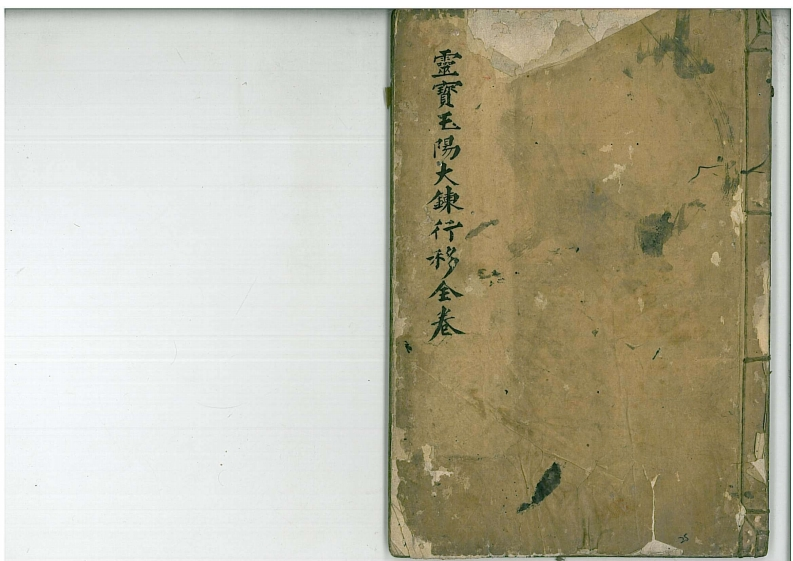 靈寶玉陽大鍊行移全卷